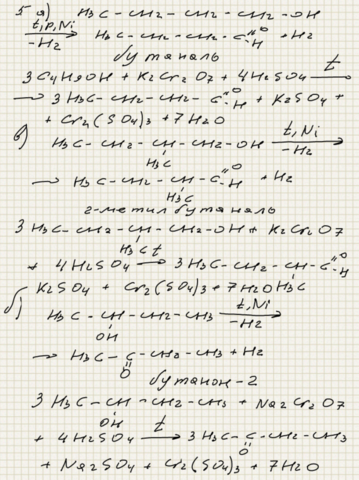 5 а) H3C – CH2 – CH2 – CH2 – OH
t,p,Ni → –H2 H3C – CH2 – CH2 – C =O –H + H2
бутаналь
3C4H9OH + K2Cr2O7 + 4H2SO4 t
→ 3H3C – CH2 – CH2 – C =O –H + K2SO4 +
+ Cr2(SO4)3 + 7H2O
в) H3C – CH2 – CH – CH2 – OH t,Ni → –H2
H3C
→ H3C – CH2 – CH – C =O –H + H2
H3C
2-метилбутаналь
3 H3C – CH2 – CH – CH2 – OH + K2Cr2O7
H3C
+ 4H2SO4 t → 3H3C – CH2 – CH – C =O –H
K2SO4 + Cr2(SO4)3 + 7H2O H3C
б) H3C – CH – CH2 – CH3 t,Ni → –H2
OH
→ H3C – C – CH2 – CH3 + H2
O
бутанон-2
3 H3C – CH – CH2 – CH3 + Na2Cr2O7
OH
+ 4H2SO4 t → 3H3C – C – CH2 – CH3
O
+ Na2SO4 + Cr2(SO4)3 + 7H2O